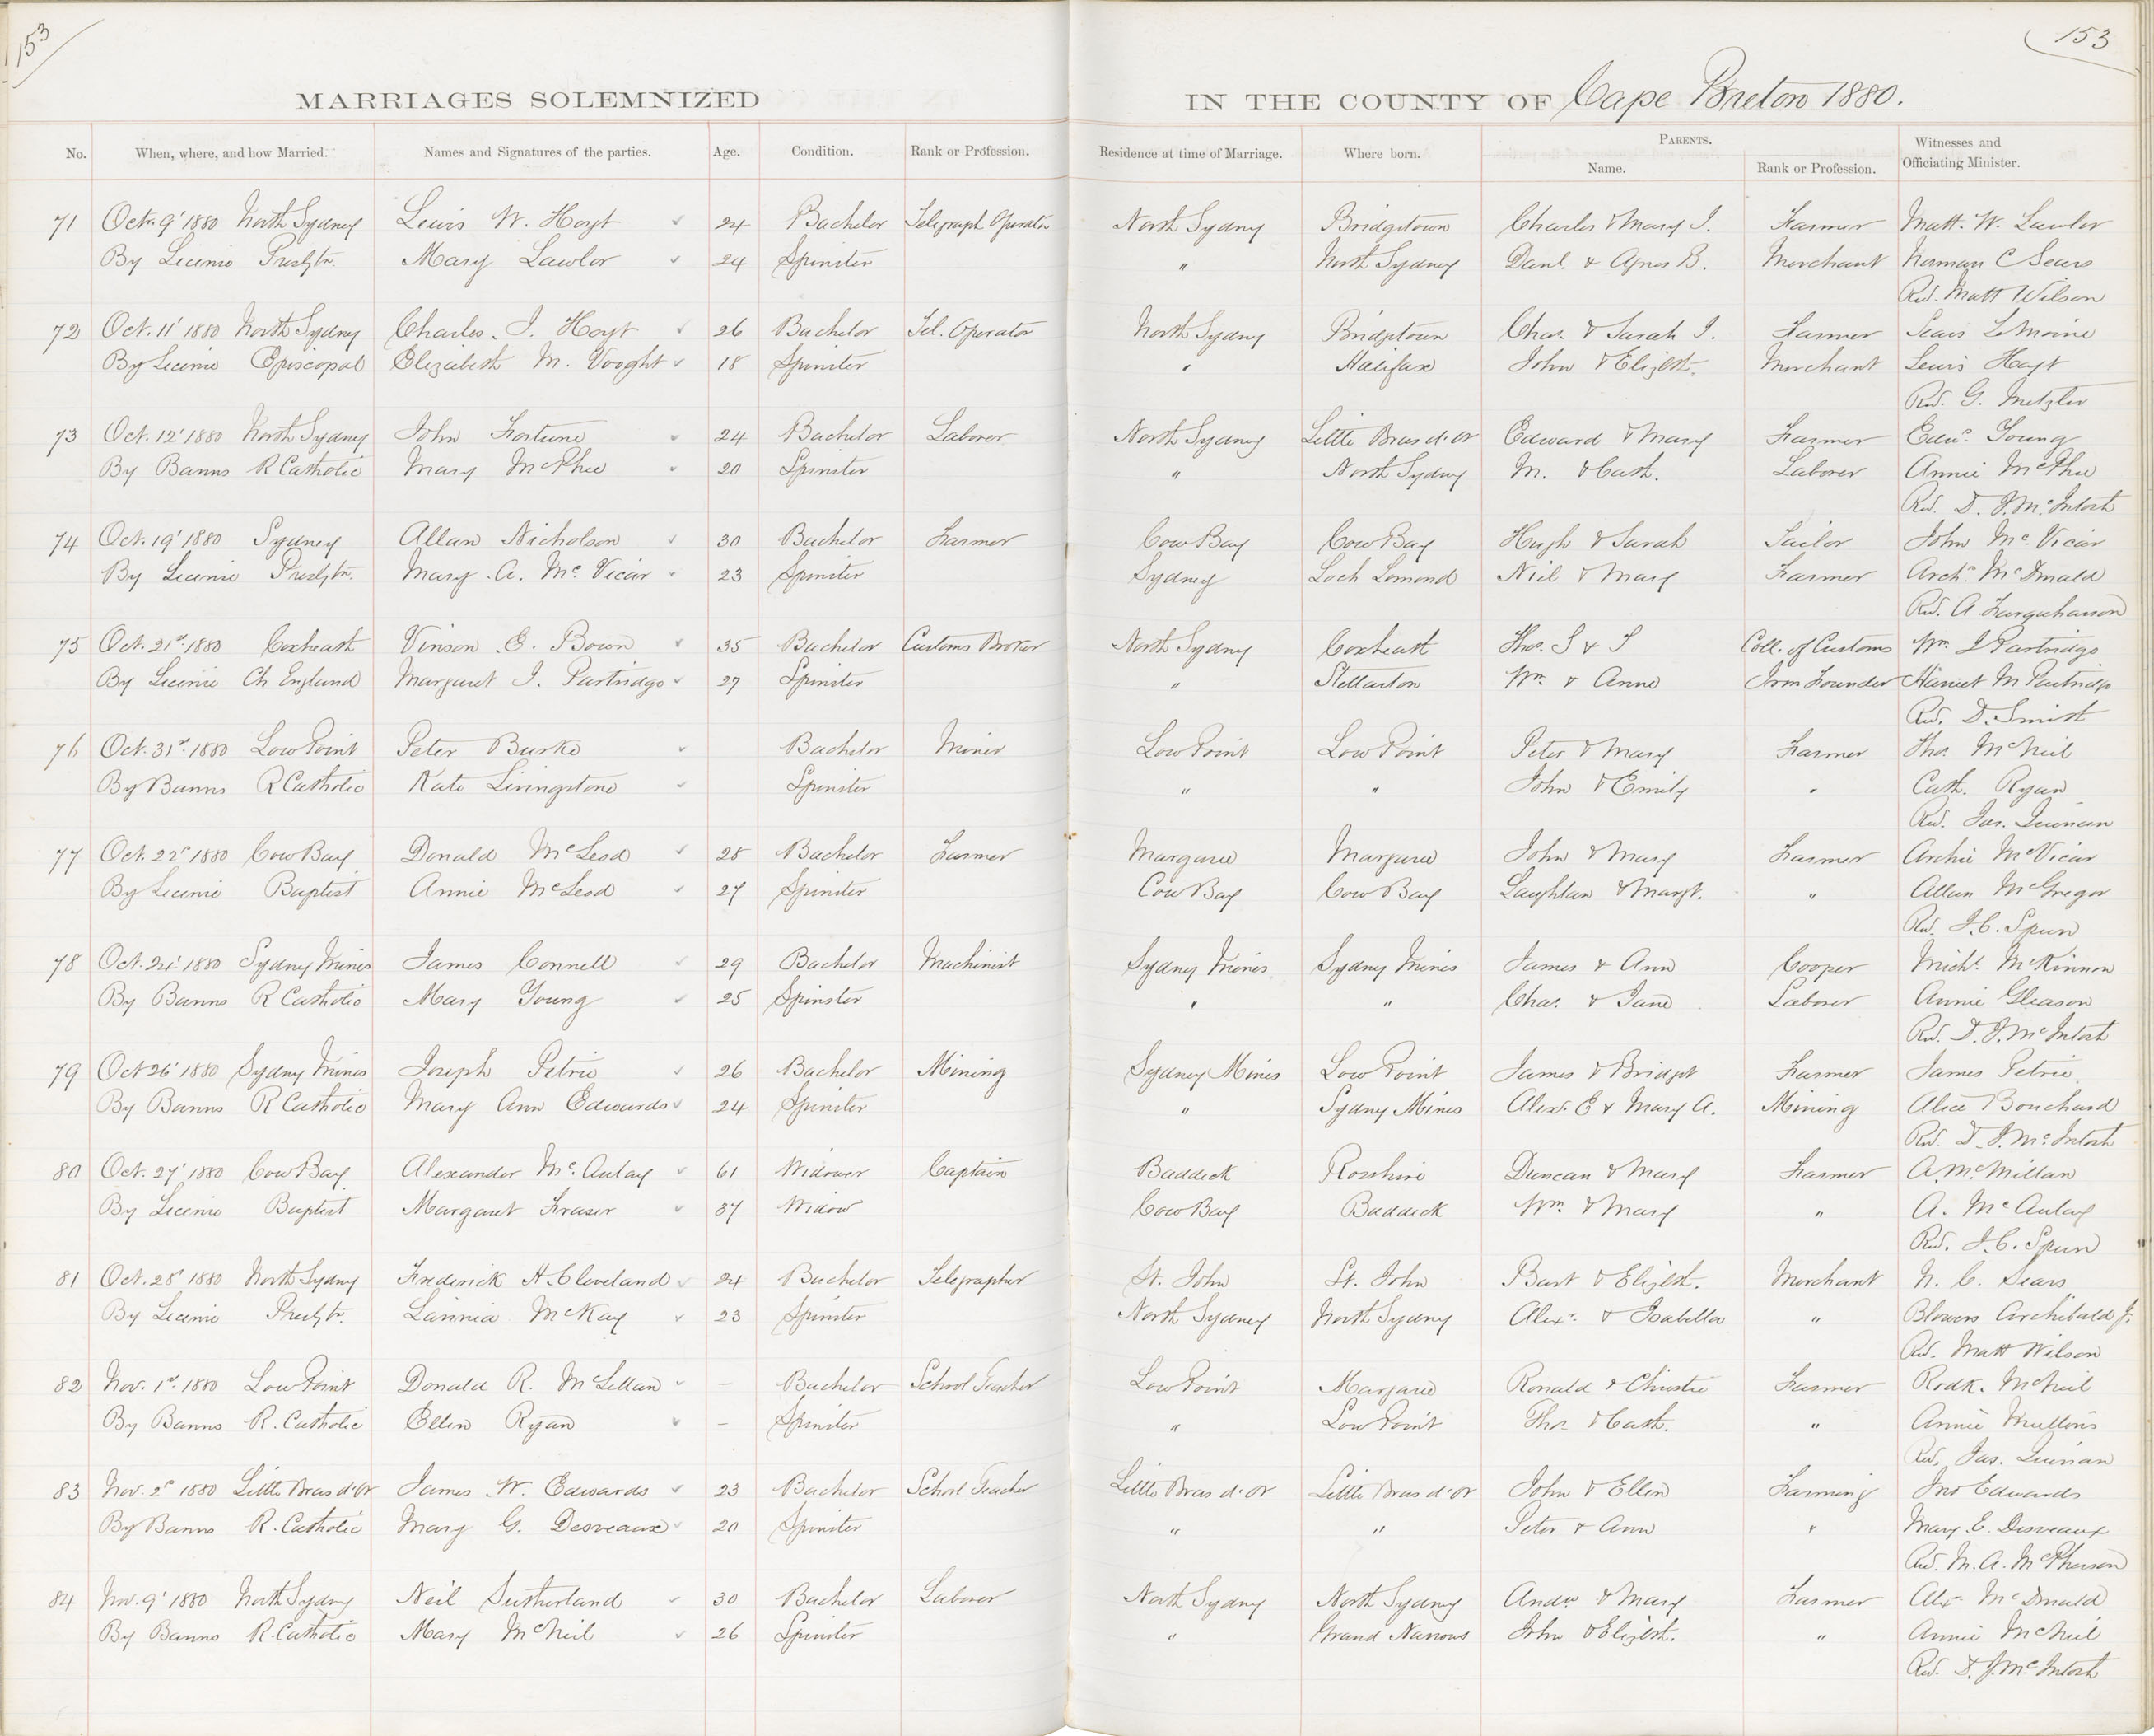 153
153
MARRIAGES SOLEMNIZED IN THE COUNTY OF Cape Breton 1880.
No. When, where, and how Married. Names and Signatures of the parties. Age. Condition. Rank or Profession. Residence at time of Marriage. Where born. PARENTS. Name. Rank or Profession. Witnesses and Officiating Minister.
71 Octr. 9' 1880 North Sydney Lewis W. Hoyt 24 Bachelor Telegraph Operator North Sydney Bridgetown Charles & Mary I. Farmer Matt. W. Lawlor
By Licence Presbtn. Mary Lawlor 24 Spinster " North Sydney Danl. & Agnes B. Merchant Norman C Sears
Rev. Matt Wilson
72 Oct. 11' 1880 North Sydney Charles. I. Hoyt 26 Bachelor Tel. Operator North Sydney Bridgetown Chas. & Sarah I. Farmer LeMoine
By Licence Episcopal Elizabeth M. Vooght 18 Spinster " Halifax John & Elizbth. Merchant Lewis Hoyt
Rev. G. Metzler
73 Oct. 12' 1880 North Sydney John Fortune 24 Bachelor Laborer North Sydney Little Bras d'Or Edward & Mary Farmer Edwd. Young
By Banns R Catholic Mary McPhee 20 Spinster " North Sydney M. & Cath. Laborer Annie McPhee
Rev. D. J. McIntosh
74 Oct. 19' 1880 Sydney Allan Nicholson 30 Bachelor Farmer Cow Bay Cow Bay Hugh & Sarah Sailor John McVicar
By Licence Presbtn. Mary A. McVicar 23 Spinster Sydney Loch Lomond Niel & Mary Farmer Archd. McDonald
Rev. A. Farquharson
75 Oct. 21st. 1880 Coxheath Vinson E. Bown 35 Bachelor Customs Broker North Sydney Coxheath Thos. S & S Coll. of Customs Wm I Partridge
By Licence Ch England Margaret J. Partridge 27 Spinster " Stellarton Wm. & Anne Iron Founder Harriet M Partridge
Rev. D. Smith
76 Oct. 31st. 1880 Low Point Peter Burke Bachelor Miner Low Point Low Point Peter & Mary Farmer Thos. McNeil
By Banns R Catholic Kate Livingstone Spinster " " John & Emily " Cath. Ryan
Rev. Jas. Quinan
77 Oct. 22d 1880 Cow Bay Donald McLeod 28 Bachelor Farmer Margaree Margaree John & Mary Farmer Archie McVicar
By Licence Baptist Annie McLeod 27 Spinster Cow Bay Cow Bay Laughlan & Margt. " Allan McGregor
Rev. J. C. Spurr
78 Oct. 24' 1880 Sydney Mines James Connell 29 Bachelor Machinist Sydney Mines Sydney Mines James & Ann Cooper Michl. McKinnon
By Banns R Catholic Mary Young 25 Spinster " " Chas. & Jane Laborer Annie Gleason
Rev. D. J. McIntosh
79 Oct 26' 1880 Sydney Mines Joseph Petrie 26 Bachelor Mining Sydney Mines Low Point James & Bridget Farmer James Petrie
By Banns R Catholic Mary Ann Edwards 24 Spinster " Sydney Mines Alexr. E & Mary A. Mining Alice Bouchard
Rev. D. J. McIntosh
80 Oct. 27' 1880 Cow Bay Alexander McAulay 61 Widower Captain Baddeck Rosshire Duncan & Mary Farmer A. McMillan
By Licence Baptist Margaret Fraser 37 Widow Cow Bay Baddeck Wm. & Mary " A. McAulay
Rev. J. C. Spurr
81 Oct. 28' 1880 North Sydney Frederick H. Cleveland 24 Bachelor Telegrapher St. John St. John Bart & Elizbth. Merchant N. C. Sears
By Licence Presbtn. Lavinia McKay 23 Spinster North Sydney North Sydney Alexr. & Isabella " Blowers Archibald Jr.
Rev. Matt Wilson
82 Nov. 1st. 1880 Low Point Donald R. McLellan – Bachelor School Teacher Low Point Margaree Ronald & Christie Farmer Rodk. McNeil
By Banns R. Catholic Ellen Ryan – Spinster " Low Point Thos. & Cath. " Annie Mullins
Rev. Jas. Quinan
83 Nov. 2d 1880 Little Bras d'Or James W. Edwards 23 Bachelor School Teacher Little Bras d'Or Little Bras d'Or John & Ellen Farming Jno Edwards
By Banns R. Catholic Mary G. Desveaux 20 Spinster " " Peter & Ann " Mary E. Desveaux
Rev. M. A. McPherson
84 Nov. 9' 1880 North Sydney Neil Sutherland 30 Bachelor Laborer North Sydney North Sydney Andw & Mary Farmer Alexr. McDonald
By Banns R. Catholic Mary McNeil 26 Spinster " Grand Narrows John & Elizbth. " Annie McNeil
Rev. D. J. McIntosh